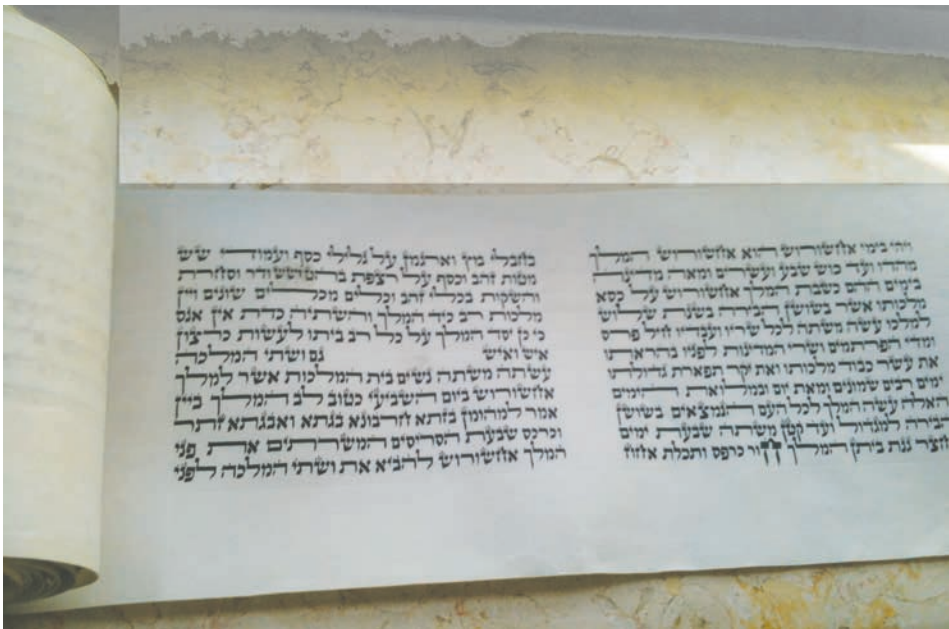 ויהי בימי אחשורוש הוא אחשורוש המלך
מהדו ועד כוש שבע ועשרים ומאה מדינה
בימים ההם כשבת המלך אחשורוש על כסא
מלכותו אשר בשושן הבירה בשנת שלוש
למלכו עשה משתה לכל שריו ועבדיו חיל פרס
ומדי הפרתמים ושרי המדינות לפניו בהראתו
את עשר כבוד מלכותו ואת יקר תפארת גדולתו
ימים רבים שמונים ומאת יום ובמלואת הימים
האלה עשה המלך לכל העם הנמצאים בשושן
הבירה למגדול ועד קטן משתה שבעת ימים
בחצר גנת ביתן המלך חור כרפס ותכלת אחוז
בחבלי בוץ וארגמן על גלילי כסף ועמודי שש
מטות זהב וכסף על רצפת בהט ושש ודר וסחרת
והשקות בכלי זהב וכלים מכלים שונים ויין
מלכות רב כיד המלך והשתיה כדת אין אנס
כי כן יסד המלך על כל רב ביתו לעשות כרצון
איש ואיש גם ושתי המלכה
עשתה משתה נשים בית המלכות אשר למלך
אחשורוש ביום השביעי כטוב לב המלך ביין
אמר למהומן בזתא חרבונא בגתא ואבגתא זתר
וכרכס שבעת הסריסים המשרתים את פני
המלך אחשורוש להביא את ושתי המלכה לפני